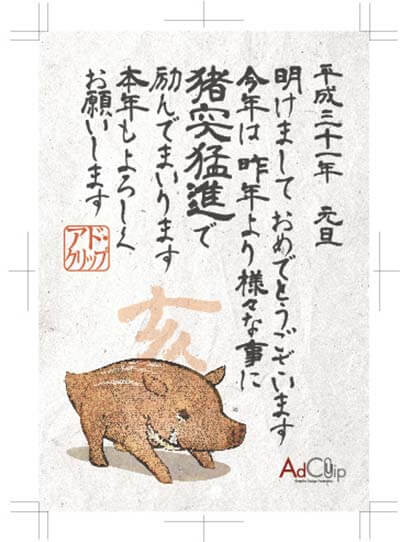 平成三十一年 元旦
明けまして おめでとうございます
今年は 昨年より様々な事に
猪突猛進で
励んでまいります
本年もよろしく
お願いします
アド・
クリップ
亥
AdClip